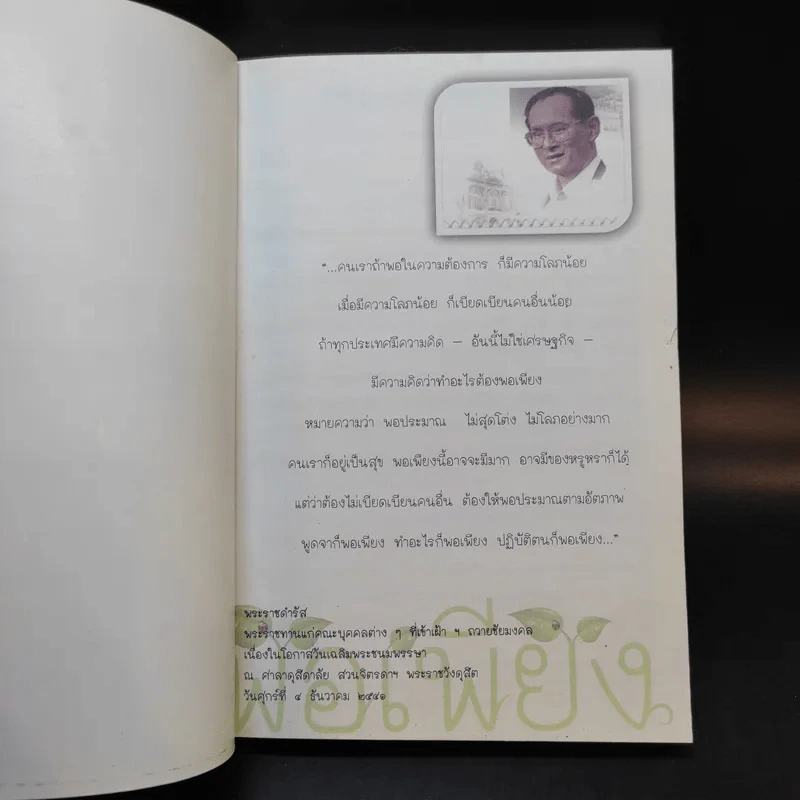 "...คนเราถ้าพอในความต้องการ ก็มีความโลภน้อย
เมื่อมีความโลภน้อย ก็เบียดเบียนคนอื่นน้อย
ถ้าทุกประเทศมีความคิด – อันนี้ไม่ใช่เศรษฐกิจ –
มีความคิดว่าทำอะไรต้องพอเพียง
หมายความว่า พอประมาณ ไม่สุดโต่ง ไม่โลภอย่างมาก
คนเราก็อยู่เป็นสุข พอเพียงนี้อาจจะมีมาก อาจมีของหรูหราก็ได้
แต่ว่าต้องไม่เบียดเบียนคนอื่น ต้องให้พอประมาณตามอัตภาพ
พูดจาก็พอเพียง ทำอะไรก็พอเพียง ปฏิบัติตนก็พอเพียง..."
พระราชดำรัส
พระราชทานแก่คณะบุคคลต่าง ๆ ที่เข้าเฝ้า ฯ ถวายชัยมงคล
เนื่องในโอกาสวันเฉลิมพระชนมพรรษา
ณ ศาลาดุสิดาลัย สวนจิตรดาฯ พระราชวังดุสิต
วันศุกร์ที่ ๔ ธันวาคม ๒๕๔๑
พอเพียง